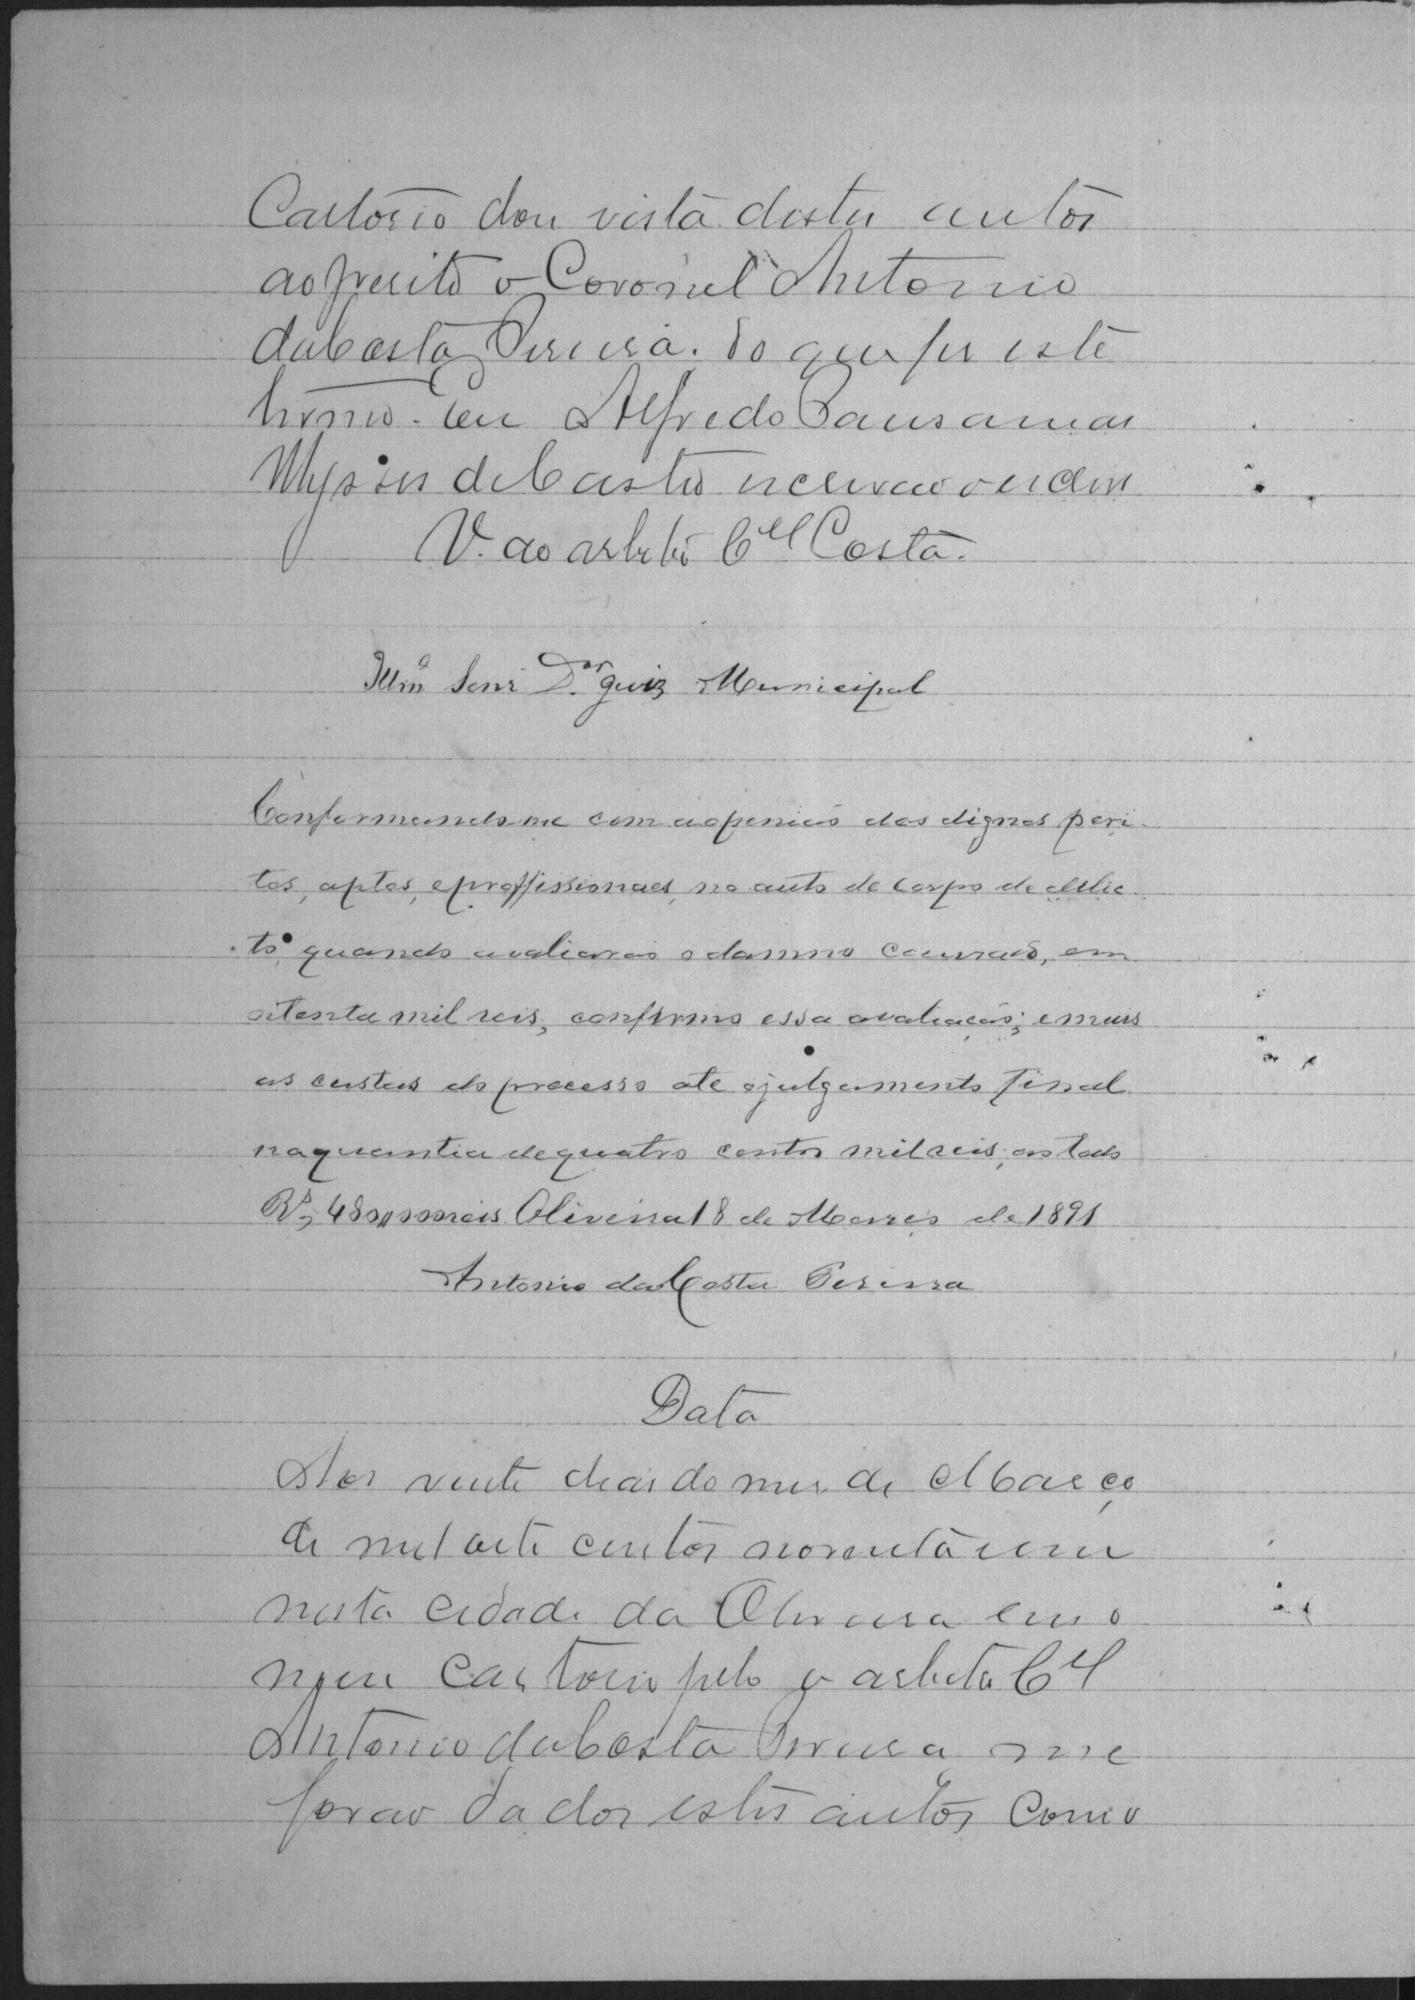 Cartorio dou vista destes autos
ao perito o Coronel Antonio
da Costa Pereira. do que fis este
termo. Eu Alfredo Pausanias
Ulysses de Castro escrivão o escrevi
V. ao arbitro Cel Costa.
Illmo Senr Dor Juiz Municipal
Conformando me com a openião dos dignos peri
tos, aptos, e proffissionaes, no auto de corpo de delic
to, quando avaliarão o damno causado, em
oitenta mil reis, confirmo essa avaliação; e mais
as custas do processo ate o julgamento final
na quantia de quatro centos mil reis; ao todo
Rs 480,,000 reis. Oliveira 18 de Março de 1891
Antonio da Costa Pereira
Data
Aos vinte dias do mes de Março
de mil oito centos noventa e um
nesta cidade da Oliveira em o
meu Cartorio pelo o arbitro Cel
Antonio da Costa Pereira me
forao dados estes autos com o